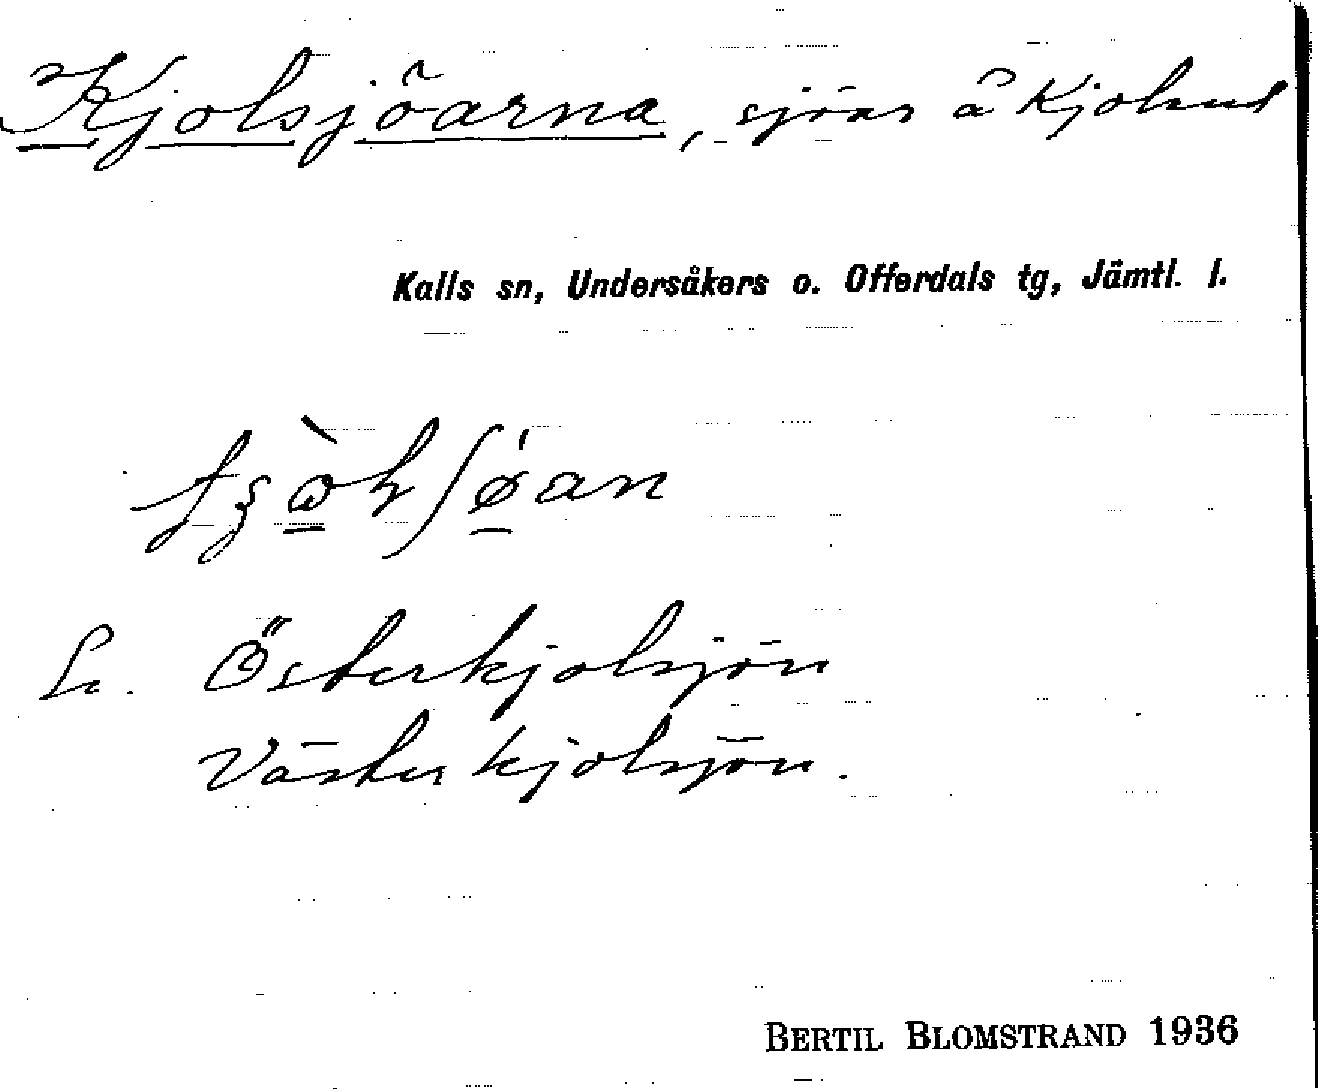 Kjolsjöarna, sjöar å Kjolen
Kalls sn, Undersåkers o. Offerdals tg, Jämtl. l.
Österkjolsjön
Västerkjolsjön.
BERTIL BLOMSTRAND 1936